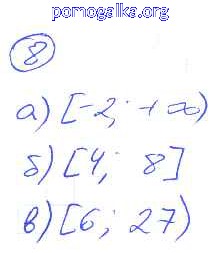 pomogalka.org
8
а) [-2; +∞)
б) [4; 8]
в) [6; 27)